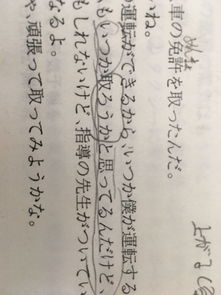 車の免許を取ったんだ。
いね。
運転ができるから、いつか僕が運転する
もいつか取ろうかと思ってるんだけど、
もしれないけど、指導の先生がついてい
なるよ。
や、頑張って取ってみようかな。